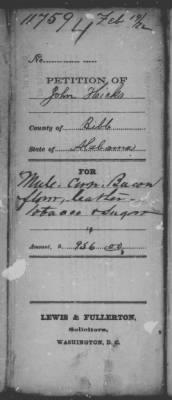 11759 Feb 19/72
No.
PETITION OF
John Hicks
County of Bibb
State of Alabama
FOR
Mule. Corn. Bacon
flour, leather
Tobacco & Sugar
Amount, $ 956 00
LEWIS & FULLERTON,
Solicitors,
WASHINGTON, D. C.